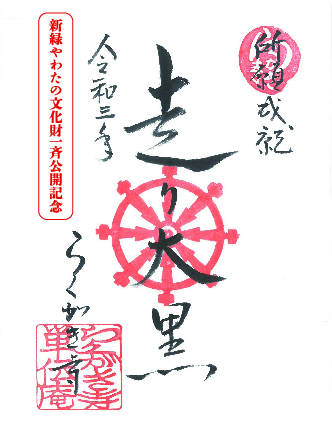 所願成就
走り大黒
令和三年
新緑やわたの文化財一斉公開記念
らくがき寺
らくがき寺
単伝庵